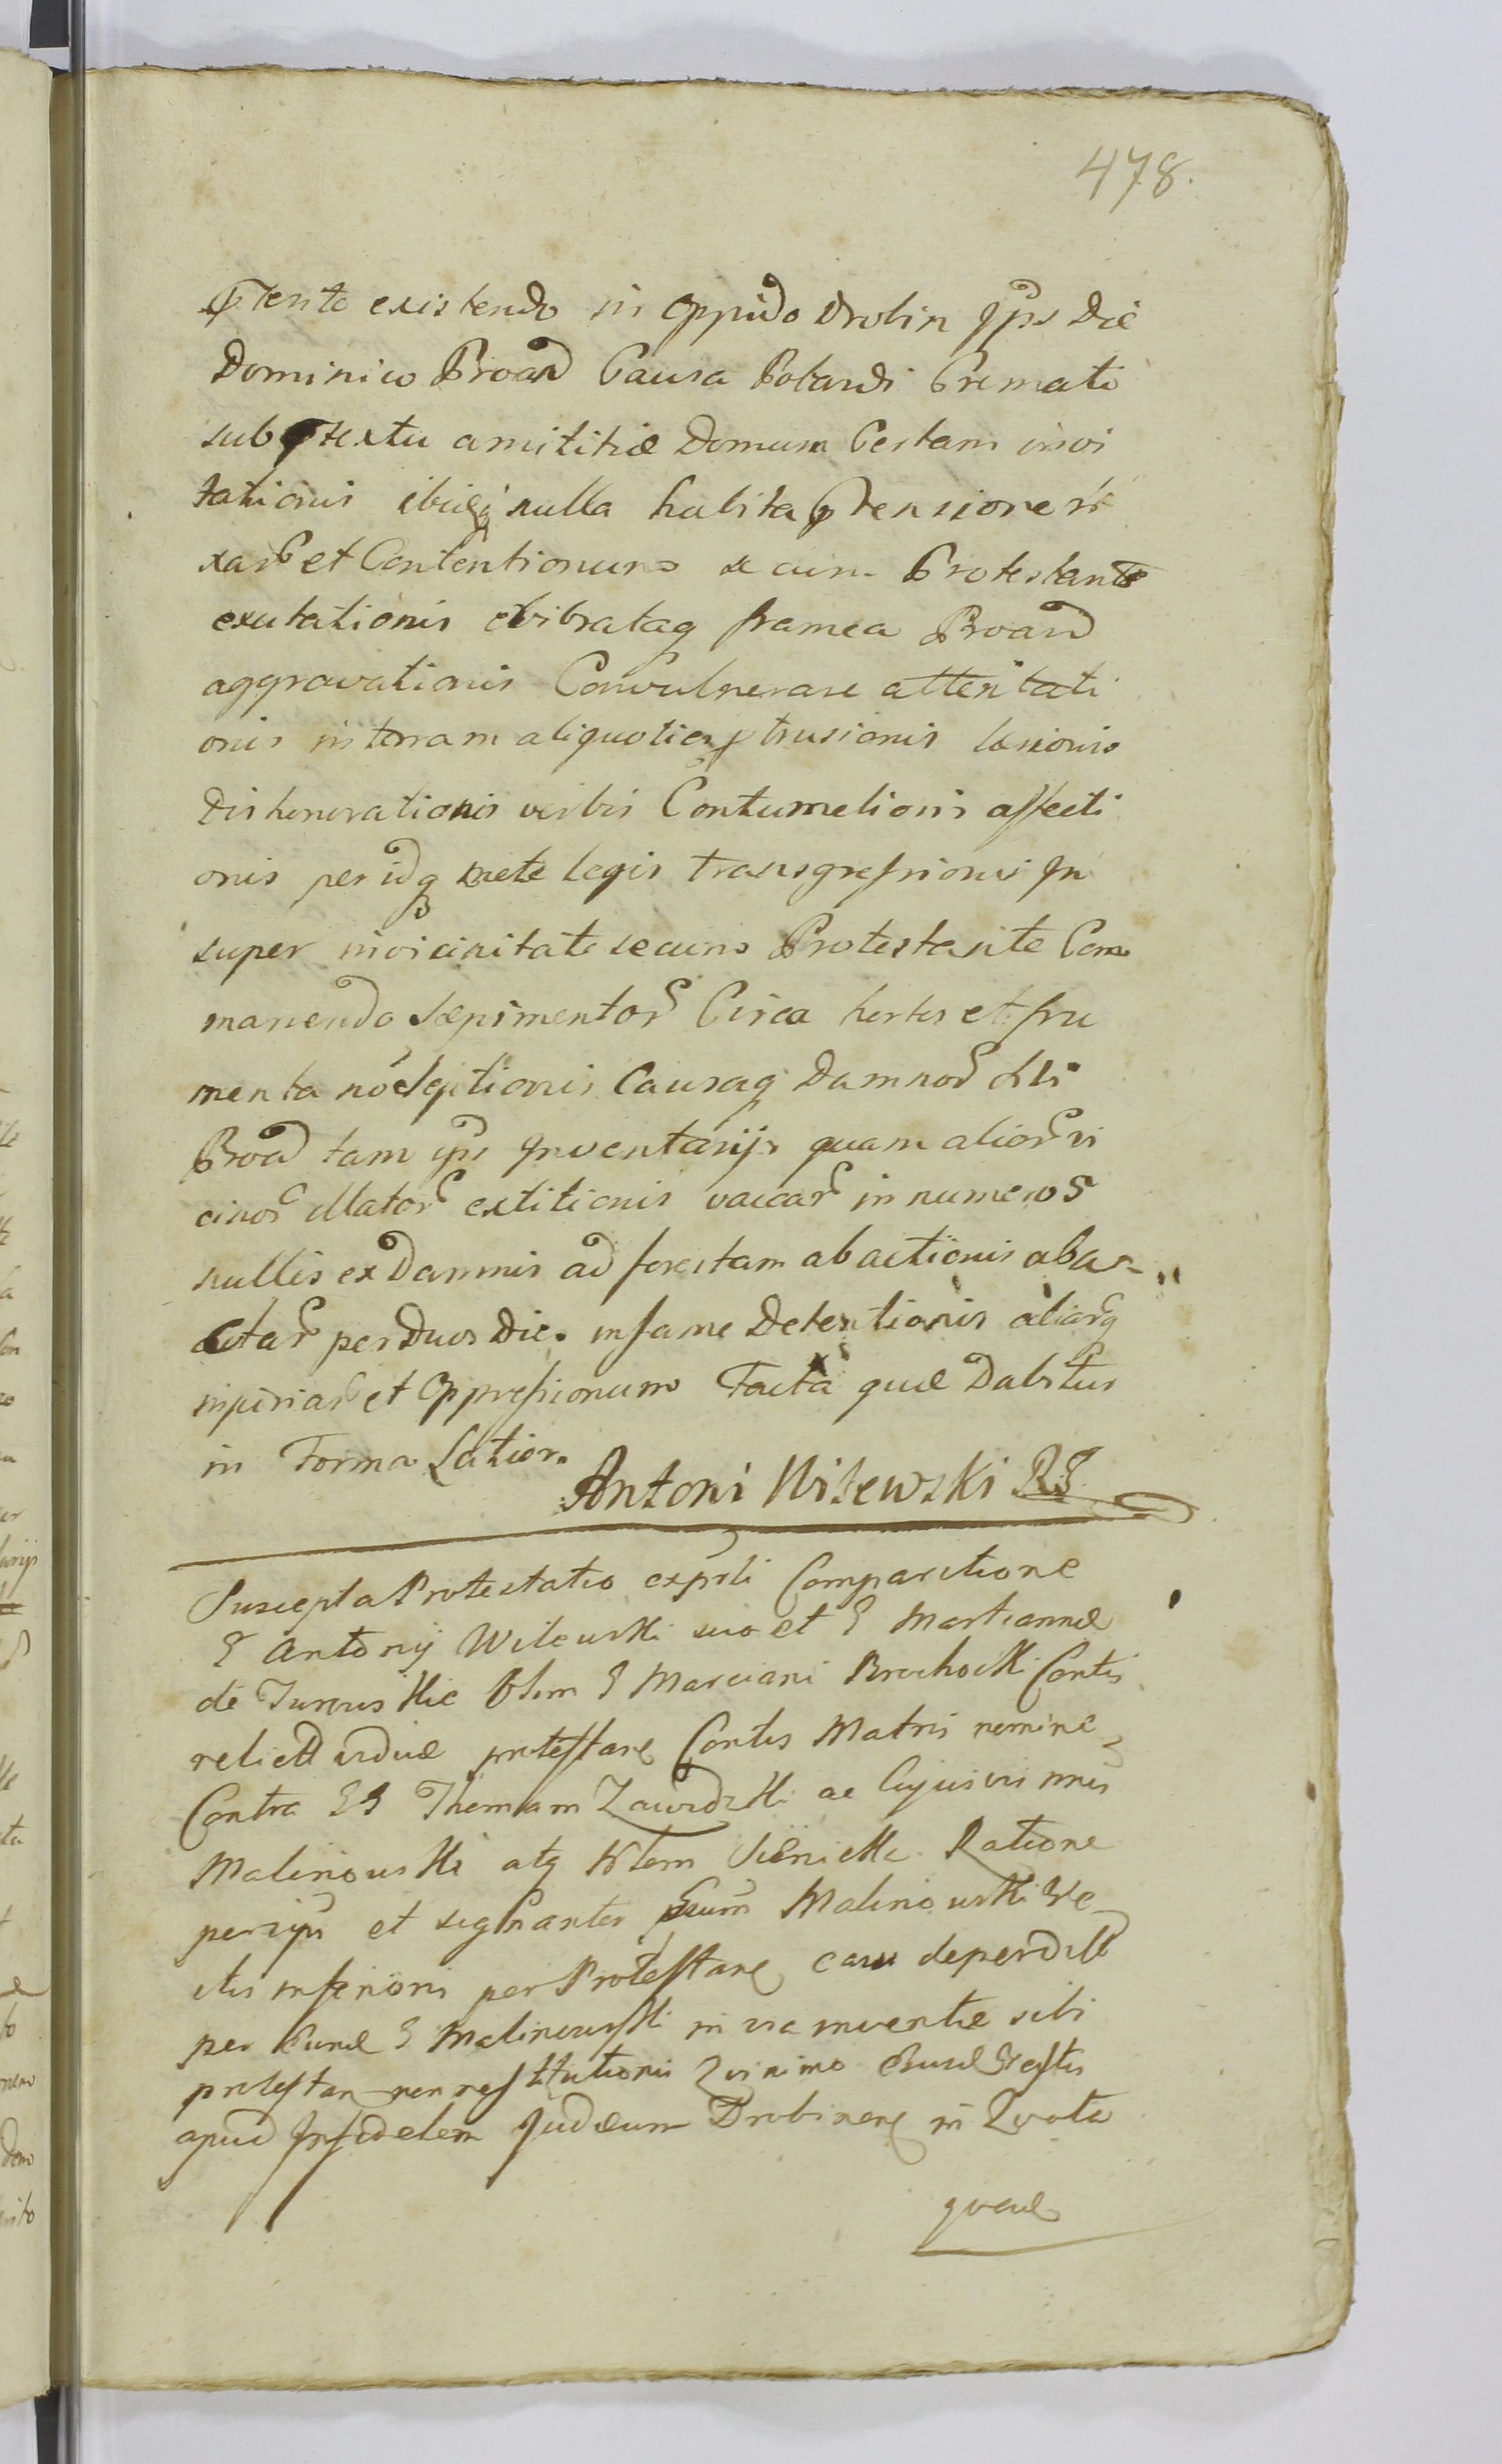 478.
existendo in oppido Drobin ips Die
Dominico Proad Causa Potandi Cremati
sub textu amititiæ Domum Certam invi
tationis ibidq nulla habita tensione ri
xar et Contentionum secum Protestante
exutationis evibrataq framea Proand
aggravationis Convulnerare attentati
onis in terram aliquoties trusionis læsionis
Dishonorationis verbis Contumeliosis affecti
onis per idq metæ legis transgressionis In
super in vicinitate secum Protestante Com
manendo Sæpimentor Circa hortos et fru
menta no Causaq Damnor
Proad tam ips Inventarijs quam alior vi
cinor illator extitionis vaccar in numero 5
nullis ex Damnis ad forestam abactionis abac-
ctar per Duos Die. in fame Detentionis aliarq
injuriar et Oppressionum Facta quæ Dabitur
in Forma Latior.
Antoni Witewski
Suscepta Protestatio ex prli Comparitione
G Antonij Witewski suo et G Martiannæ
de Turowskie Olim G Marciani Brochocki Contis
relictæ viduæ protestare Contis Matris nomine
Contra GG Thomam Zawidzki ac Cujusvis nnis
Malinowski atq Sienicki Ratione
per ips et signanter Malinowski Ve
stis inferioris per Protestane casu deperdittæ
per Eund G Malinowski in via inventæ sibi
protestan non restitutionis Quinimo Vestis
apud Infidelem Judæum Drobinen in Quota